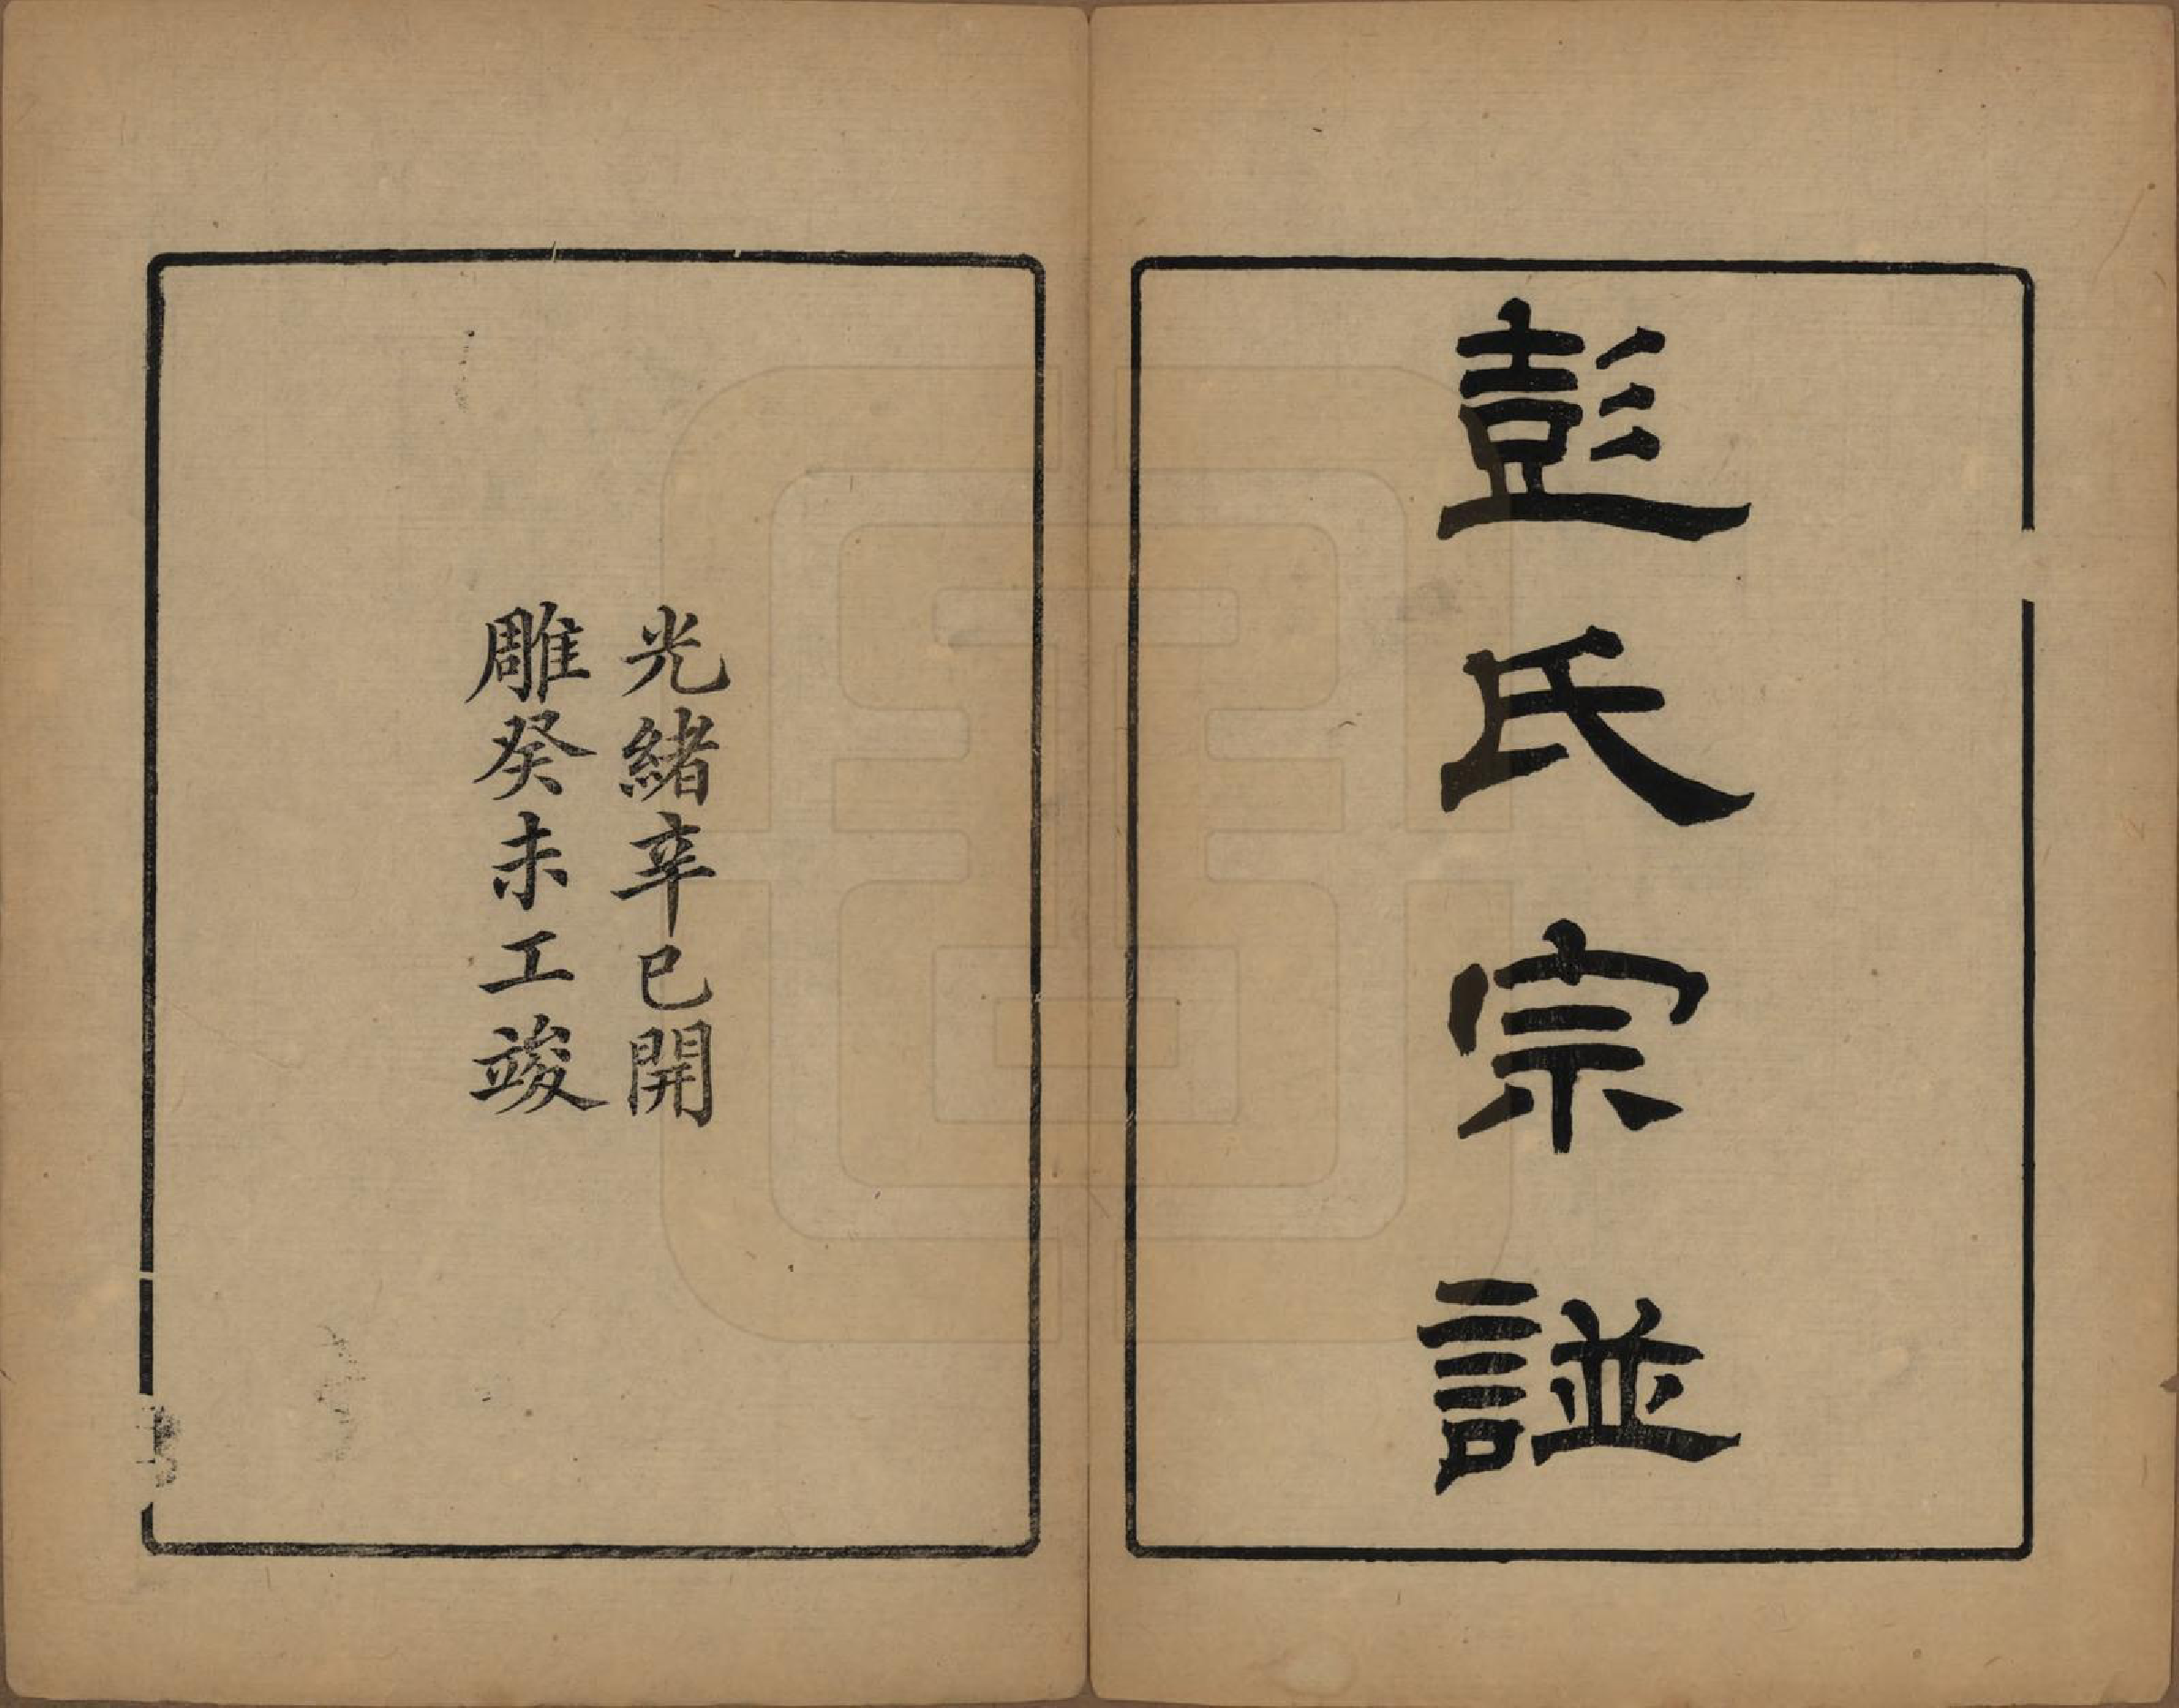 彭氏宗譜
光緒辛巳開
雕癸未工竣